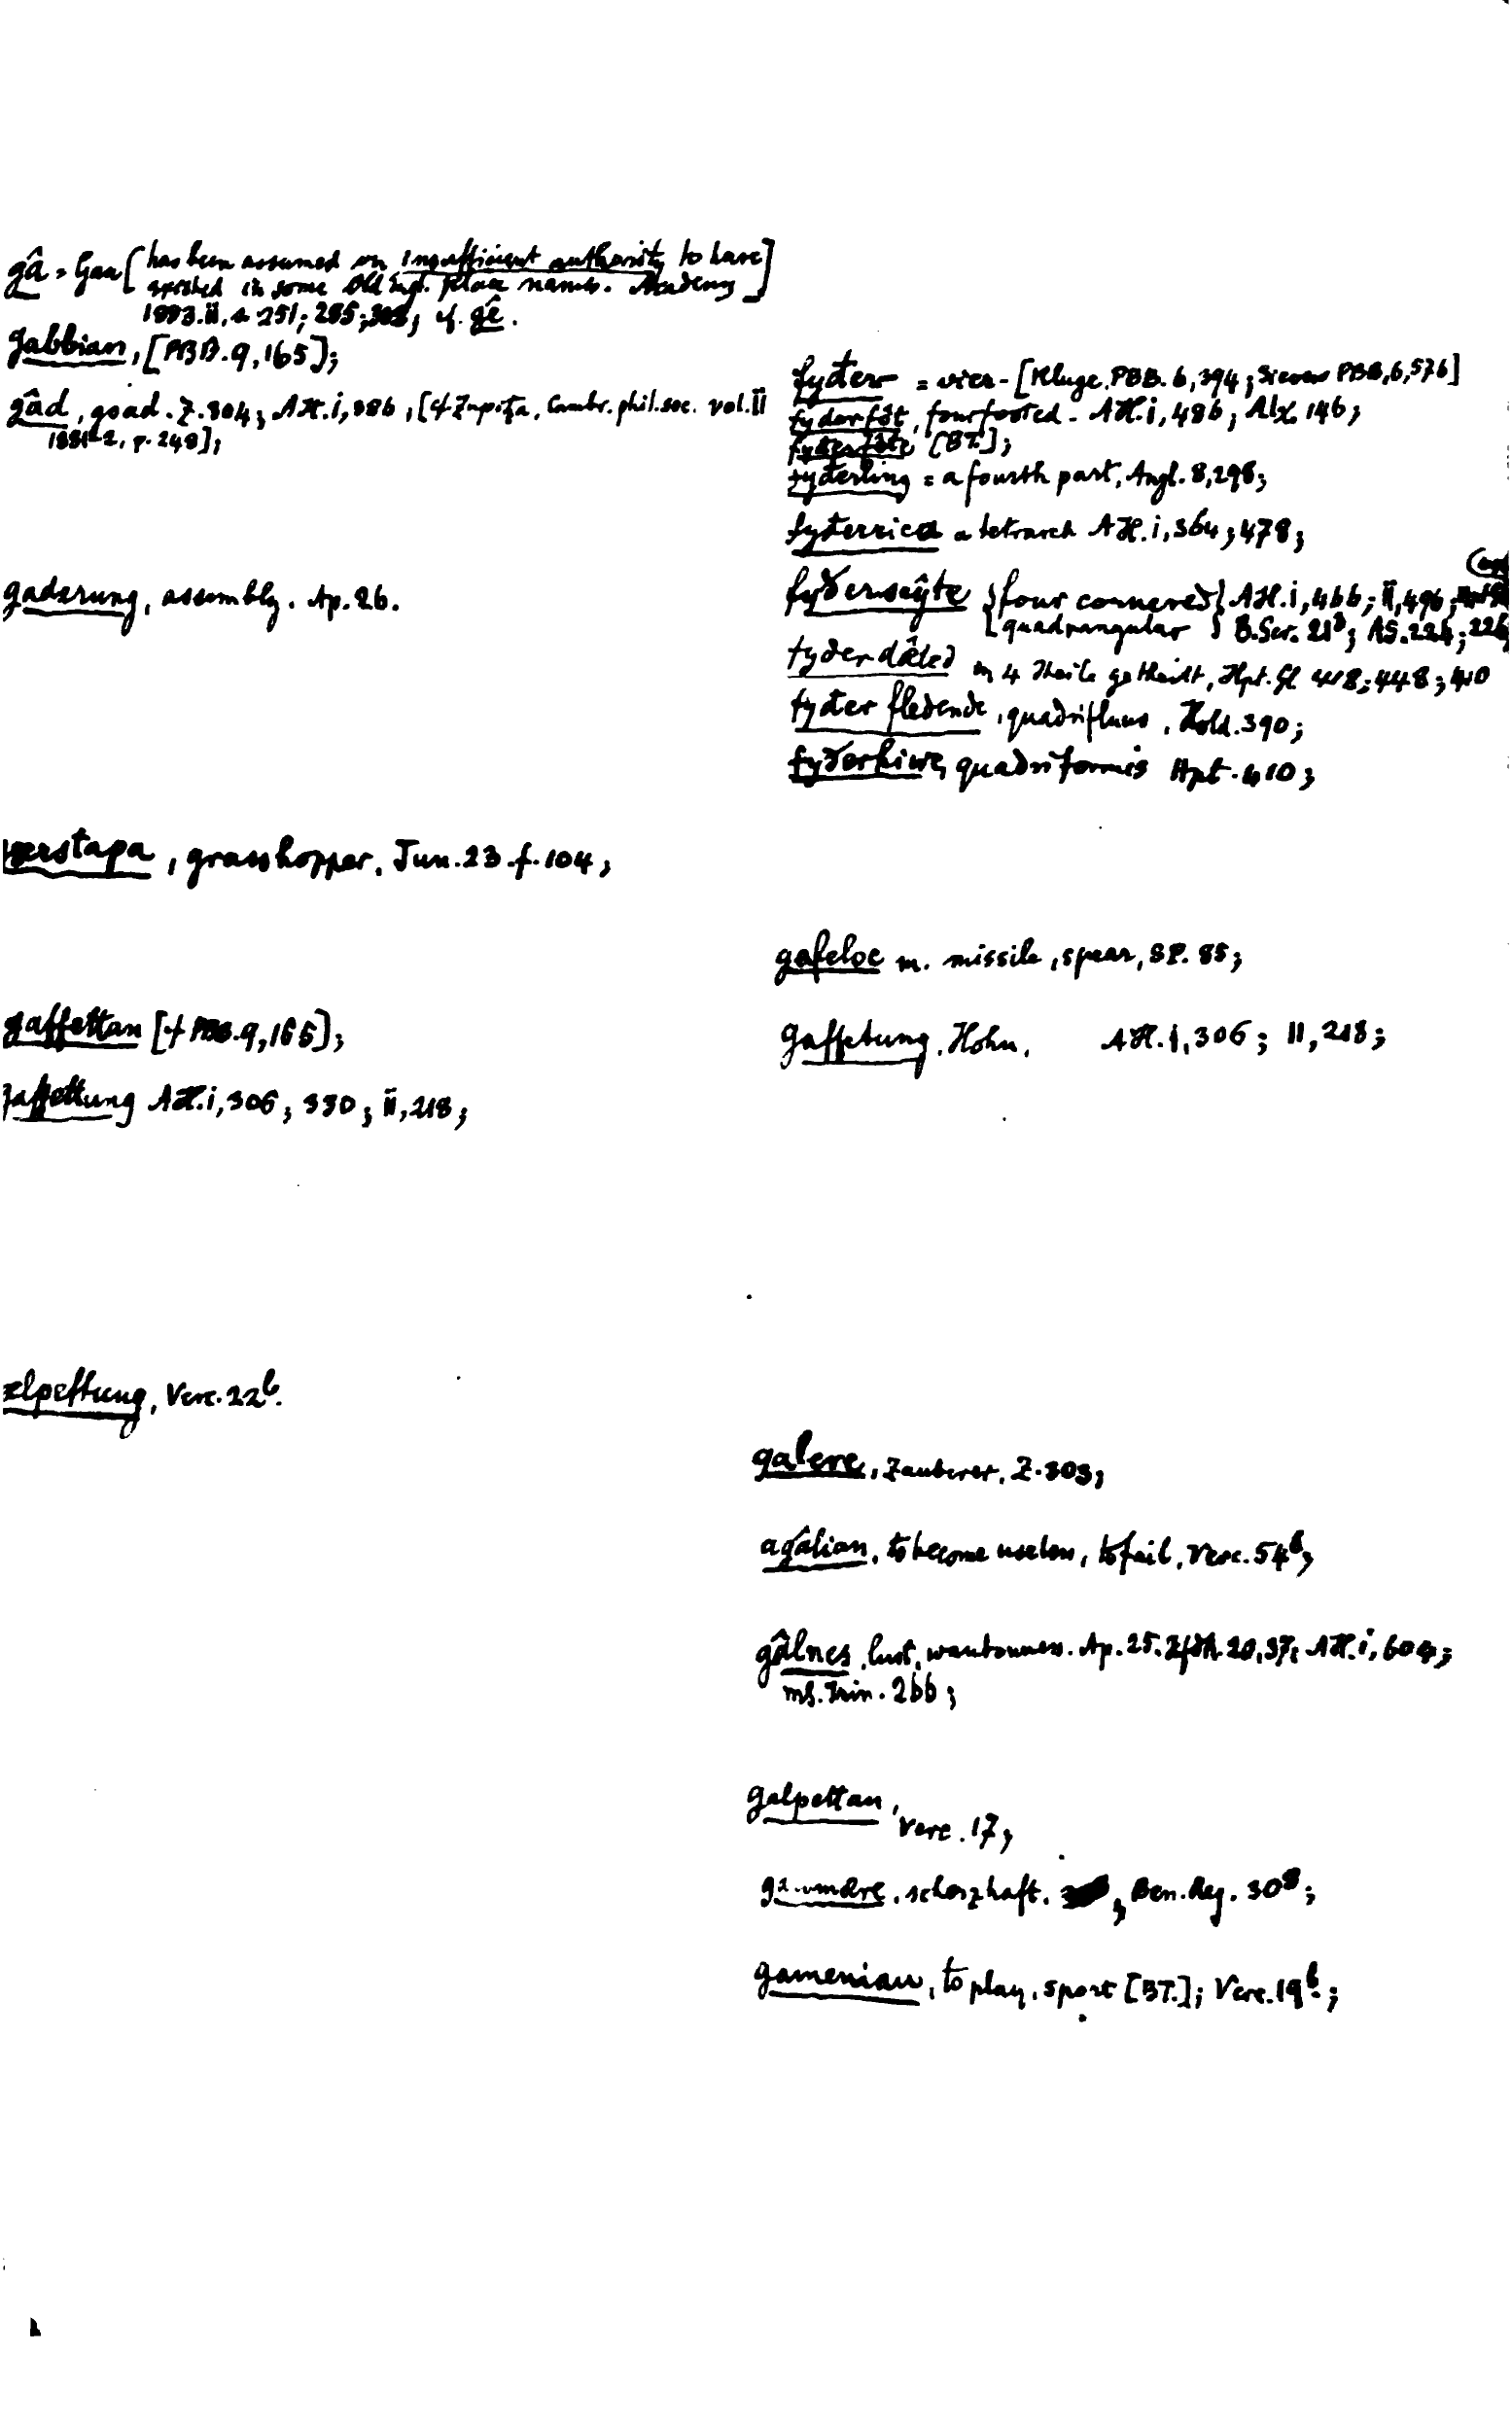 gâ = Gau [has been assumed on insufficient authority to have]
existed in some Old Engl. place names. Academy
1883.ii, 251; 285; cf. gê.
gabbian, [PBB.9,165];
gâd, goad. Z.304; AH.i,386, [cf Zupitza, Cambr. phil. soc. vol. II
1881-2, p. 248];
gaderung, assembly. Ap.26.
gærstapa, grasshopper. Jun.23.f.104;
gaffettan [cf PBB.9,165];
gaffettung AH.i,306; 330; ii,218;
gælpettung, Verc.22b.
fyđer = vier- [Kluge. PBB. 6,394; Sievers PBB,6,576]
fyđerfôt, fourfooted - AH.i,486; Alx.146;
fyđerfôte [BT.];
fyđerling = a fourth part, Angl.8,298;
fyđerrica a tetrarch AH.i,364; 478;
fyðerscŷte {four cornered} AH.i,466; ii,496;
{quadrangular} B.Scr. 21; AS.224; 226
fyðerdǽled in 4 Theile getheilt, Hpt.Gl 418; 448; 410
fyđer flêdende, quadrifluus, Hold.390;
fyðerhiwe, quadriformis Hpt.410;
gafeloc m. missile, spear, SP. 85;
gaffetung. Hohn. AH.i,306; II,218;
galere, Zauberer, Z.303;
agâlian, to become useless, to fail, Verc.54b;
gâlnes, lust, wantonness. Ap.25. ZfdA 20,37; AH.i,604;
ms. Trin. 266;
galpettan, Verc.17;
scherzhaft. Ben.Reg. 30;
gamenian, to play, sport [BT.]; Verc.19b;